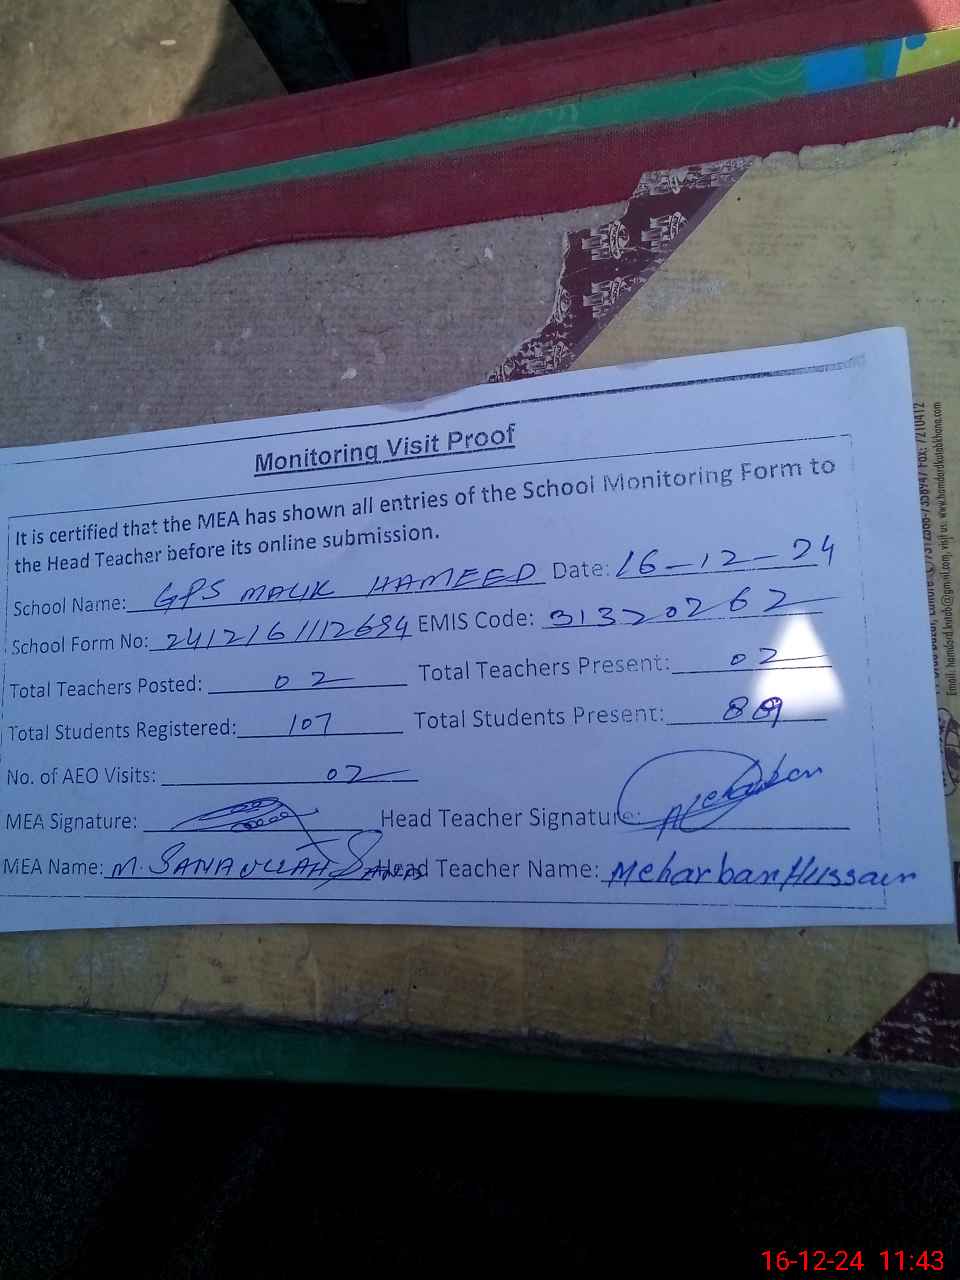 Monitoring Visit Proof
It is certified that the MEA has shown all entries of the School Monitoring Form to
the Head Teacher before its online submission.
School Name: GPS MALIK HAMEED Date: 16-12-24
School Form No: 2412161112694 EMIS Code: 31320262
Total Teachers Posted: 02 Total Teachers Present: 02
Total Students Registered: 107 Total Students Present: 89
No. of AEO Visits: 02
MEA Signature: Head Teacher Signature: Meharban
MEA Name: M. SANAULLAH Head Teacher Name: Meharban Hussain
Fax: 7210412
Email: hamdard.kutab@gmail.com, visit us: www.hamdardkutabkhana.com
16-12-24 11:43